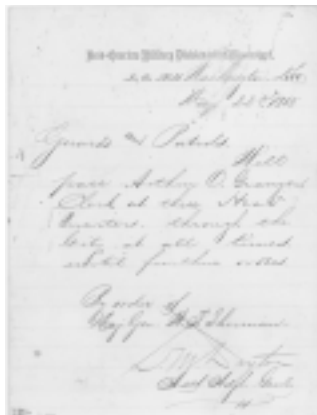 Head-Quarters Military Division of the Mississippi,
In the Field, Washington, D.C.
May 22d 186
Guards and Patrols
Will
pass Arthur O. Granger
Clerk at these Head
Quarters. through the
City at all times
until further orders
By order of
Maj Gen W. T. Sherman
L M Dayton
Asst Adjt Genl